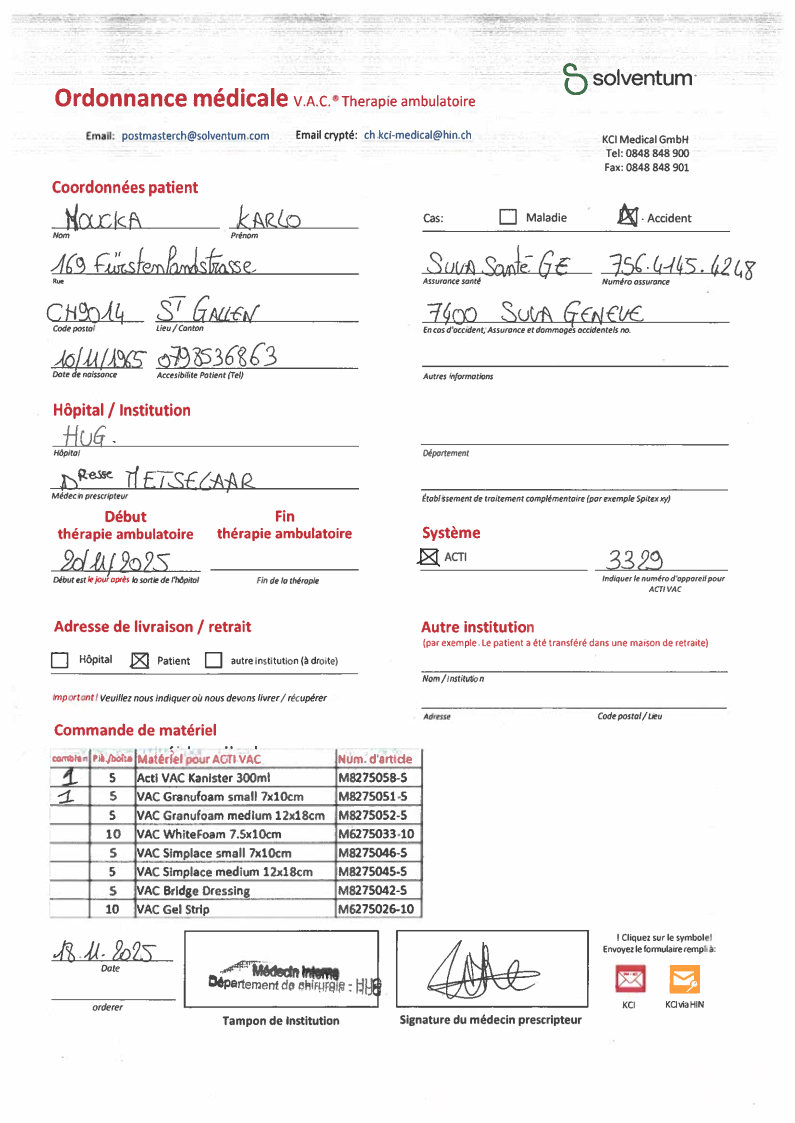 solventum
Ordonnance médicale V.A.C.® Therapie ambulatoire
Email: postmasterch@solventum.com Email crypté: ch.kci-medical@hin.ch
KCI Medical GmbH
Tel: 0848 848 900
Fax: 0848 848 901
Coordonnées patient
MOUCKA KARLO
Nom Prénom
Cas: Maladie Accident
169 Fürstenlandstrasse
Rue
SUVA Santé GE 756.4145.4248
Assurance santé Numéro assurance
CH9014 ST GALLEN
Code postal Lieu / Canton
7400 SUVA GENEVE
En cas d'accident, Assurance et dommages accidentels no.
10/11/1965 0798536863
Date de naissance Accesibilite Patient (Tel)
Autres informations
Hôpital / Institution
HUG.
Hôpital
Département
DResse METSEGAAR
Médecin prescripteur
Établissement de traitement complémentaire (par exemple Spitex xy)
Début thérapie ambulatoire
Fin thérapie ambulatoire
20/11/2025
Début est le jour après la sortie de l'hôpital
Fin de la thérapie
Système
ACTI 3329
Indiquer le numéro d'appareil pour
ACTI VAC
Adresse de livraison / retrait
Hôpital Patient autre institution (à droite)
Important! Veuillez nous indiquer où nous devons livrer / récupérer
Autre institution
(par exemple. Le patient a été transféré dans une maison de retraite)
Nom / Institution
Adresse Code postal / Lieu
Commande de matériel
combien Piè./boîte Matériel pour ACTI VAC Num. d'article
1 5 Acti VAC Kanister 300ml M8275058-5
1 5 VAC Granufoam small 7x10cm M8275051-5
5 VAC Granufoam medium 12x18cm M8275052-5
10 VAC WhiteFoam 7.5x10cm M6275033-10
5 VAC Simplace small 7x10cm M8275046-5
5 VAC Simplace medium 12x18cm M8275045-5
5 VAC Bridge Dressing M8275042-5
10 VAC Gel Strip M6275026-10
18.11.2025
Date
orderer
Médecin Interne
Département de chirurgie - HUG
Tampon de Institution
Signature du médecin prescripteur
! Cliquez sur le symbole!
Envoyez le formulaire rempli à:
KCI KCI via HIN